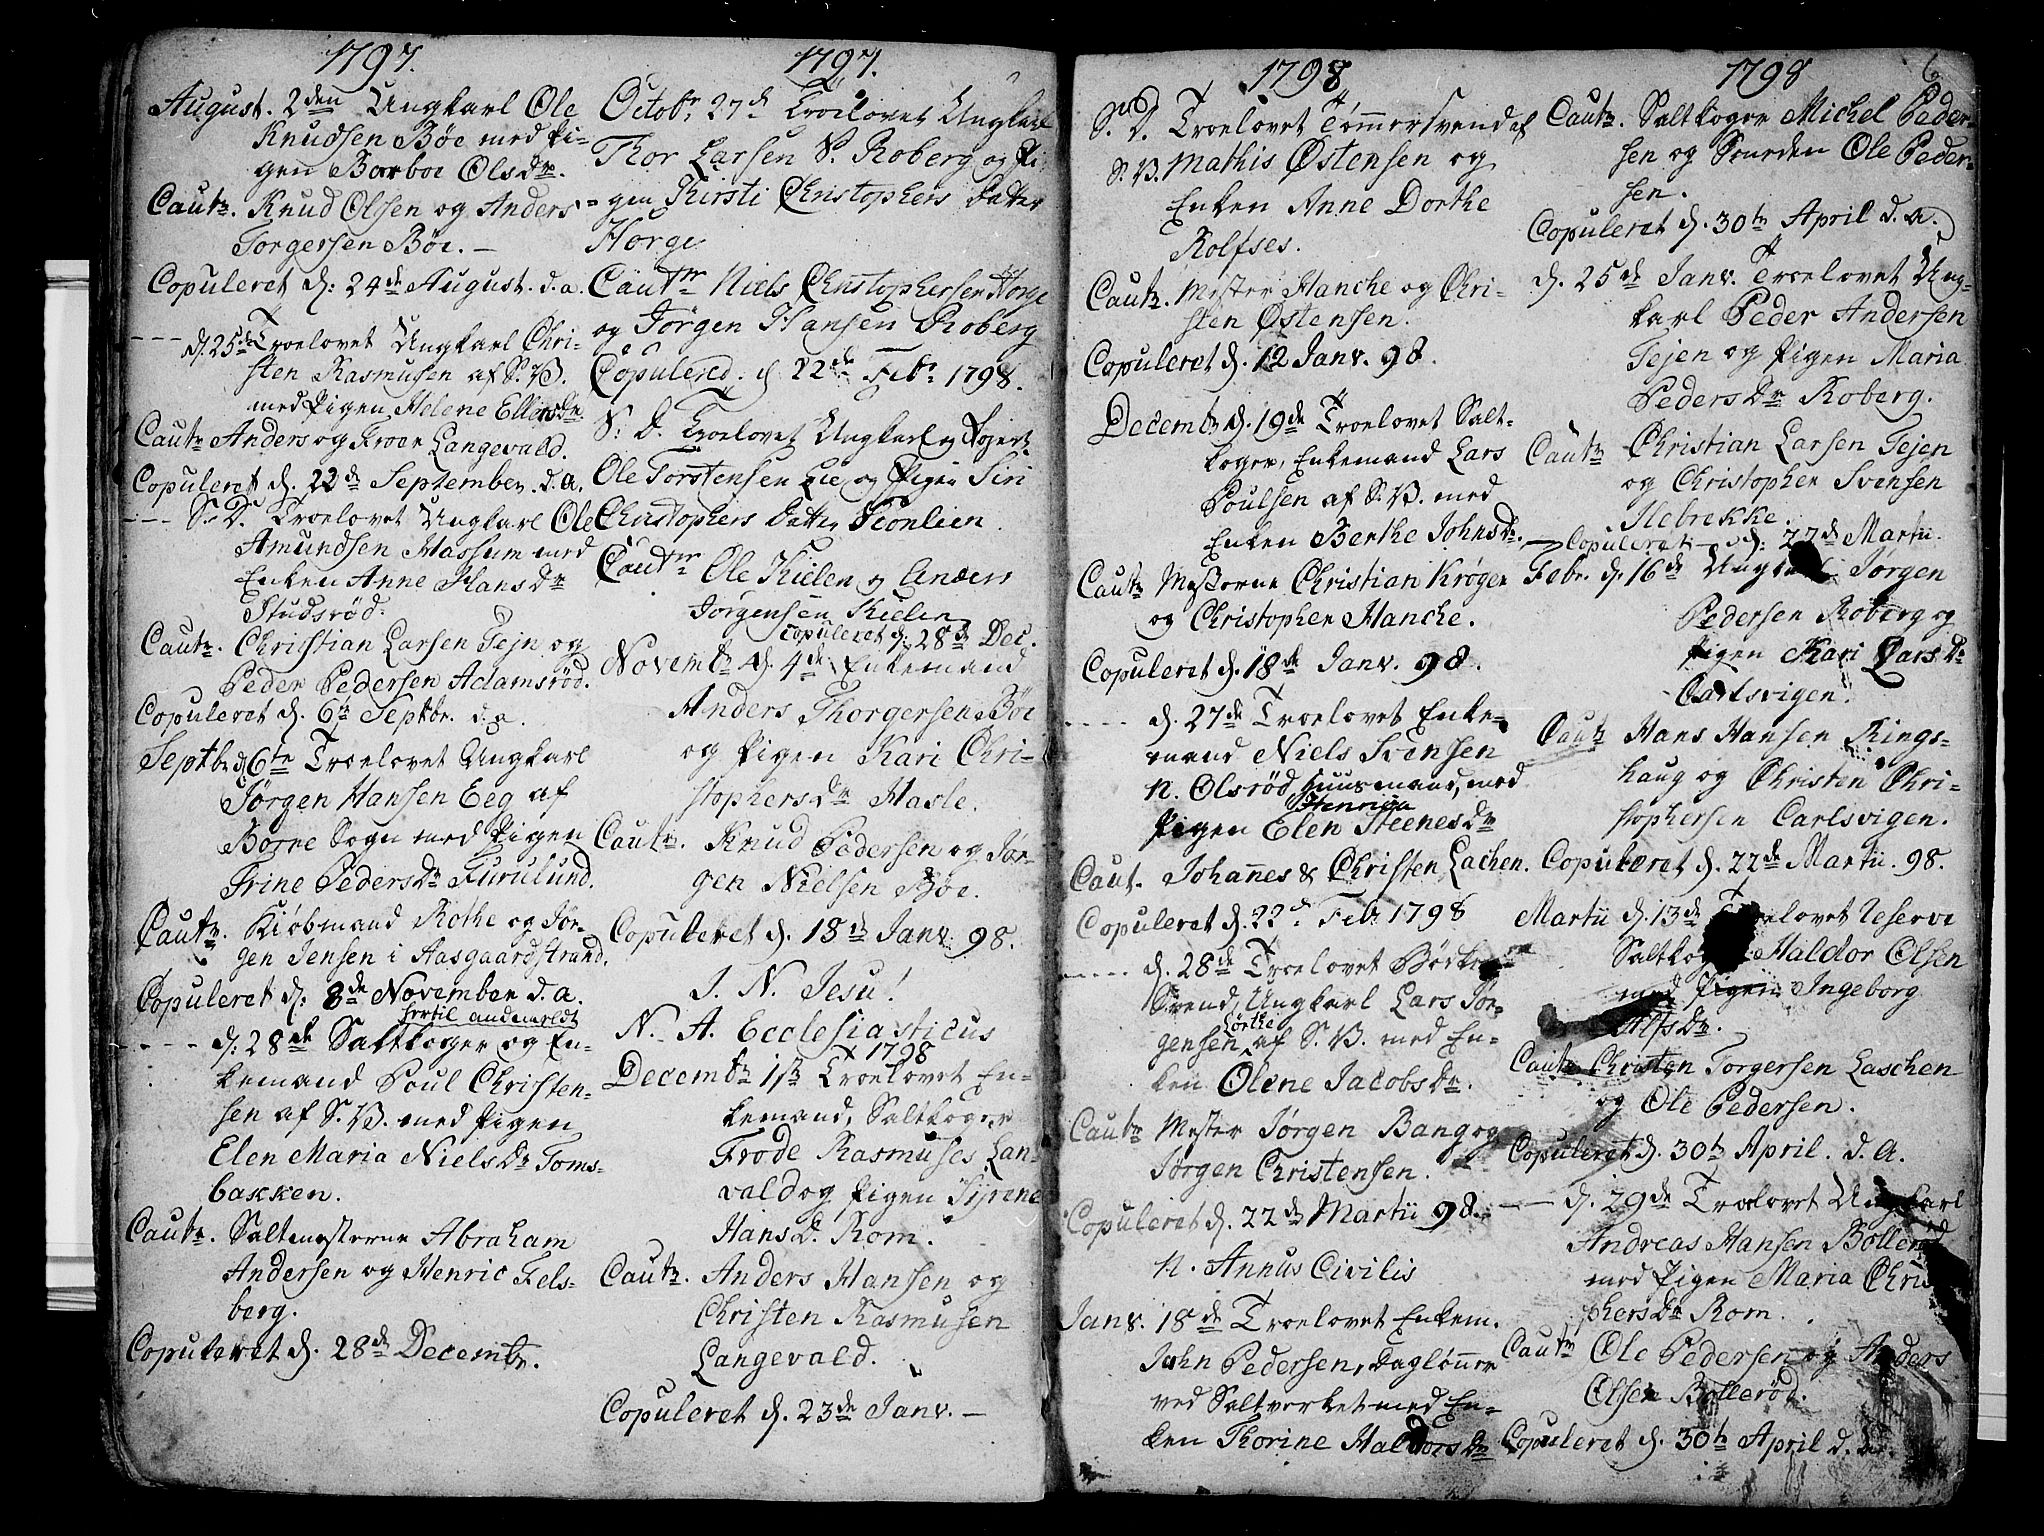 1797.
August. 2den Ungkarl Ole
Knudsen Böe med Pi-
gen Barboe Olsdr.
Cautr. Knud Olsen og Anders
Torgersen Böe. —
Copuleret d: 24de August. d. a.
--- d. 25de Troelovet Ungkarl Chri-
sten Rasmusen af S. V.
med Pigen Helene Ellersdr
Cautr Anders og Froer Langevald.
Copuleret d. 22de September. d. a.
--- S. D. Troelovet Ungkarl Ole
Amundsen Hassum med
Enken Anne Hansdr
Studsröd.
Cautr. Christian Larsen Tejn og
Peder Pedersen Adamsröd.
Copuleret d. 6te Septbr. d. a.
Septbr d 6te Troelovet Ungkarl
Jörgen Hansen Eeg af
Borre Sogn med Pigen
Trine Pedersdr Furulund.
Cautr. Kiöbmand Rothe og Jör-
gen Jensen i Aasgaardstrand.
Copuleret d: 8de November d. a.
hertil andemeldt
--- d: 28de Saltkoger og En-
kemand Poul Christen-
sen af S. V. med Pigen
Elen Maria Nielsdr Toms-
bakken.
Cautr. Saltmesterne Abraham
Andersen og Henric Fels-
berg.
Copuleret d. 28de Decembr.
1797.
Octobr. 27d Troelovet Ungkarl
Thor Larsen N. Roberg og Pi-
gen Kirsti Christophers Datter
Horge
Cautr Niels Christophersen Horge
og Jörgen Hansen Roberg
Copulered d 22de Febr 1798.
S: D. Troelovet Ungkarl og
Ole Torstensen Lie og Pigen Siri
Christophers Datter Feonlien.
Cautr Ole Kielen og Anders
Jörgensen Kielen
copuleret d: 28de Dec.
Novembr d. 4de Enkemand
Anders Thorgersen Böe
og Pigen Kari Chri-
stophersdr Hasle.
Cautr. Knud Pedersen og Jör-
gen Nielsen Böe.
Copuleret d. 18de Janv. 98.
I. N. Jesu!
N. A. Ecclesiasticus
1798
Decembr 1ste Troelovet En-
kemand, Saltkoger
Frode Rasmuses Lan-
vald og Pigen Sirene
Hans D. Rom.
Cautr. Anders Hansen og
Christen Rasmusen
Langevald.
Copuleret d. 23de Janv. —
1798
S. D. Troelovet Tömmersvend af
S. V. Mathis Östensen og
Enken Anne Dorthe
Rolfses.
Cautr. Mester Hanche og Chri-
sten Östensen.
Copuleret d. 12 Janv. 98.
Decembr d. 19de Troelovet Salt-
koger, Enkemand Lars
Poulsen af S. V. med
Enken Berthe Johnsdr.
Cautr Mesterne Christian Kröger
og Christopher Hanche.
Copuleret d. 18de Janv. 98.
---- d. 27de Troelovet Enke-
mand Niels Svensen
N. Olsröd, Huusmand, med
Henrica
Pigen Elen Steenesdr
Caut. Johannes & Christen Lachen.
Copuleret d. 22d Febr 1798
---- d. 28de Troelovet Bödker-
Svend, Ungkarl Lars Jör-
gensen af S. V. med En-
Dorthe
ken Olene Jacobsdr.
Cautr Mester Jörgen Bang og
Jörgen Christensen.
Copuleret d. 22de Martii 98.
N. Annus Civilis
Janv. 18de Troelovet Enkem.
John Pedersen, Daglönner
ved Saltverket med En-
ken Thorine Haldorsdr
1798
6
Cautr. Saltkoger Michel Peder-
sen og Smeden Ole Peder-
sen.
Copuleret d. 30te April d. a.
d. 25de Janv. Troelovet Ung-
karl Peder Andersen
Tejen og Pigen Maria
Pedersdr Roberg.
Cautr Christian Larsen Tejen
og Christopher Svensen
Ilebrekke.
Copuleret d: 22de Martii.
Febr. d. 16de Ungkarl Jörgen
Pedersen Roberg og
Pigen Kari Larsdr
Carlsvigen.
Cautr Hans Hansen Rings-
haug og Christen Chri-
stophersen Carlsvigen.
Copuleret d. 22de Martii. 98.
Martii d. 13de Troelovet Reserve
Saltkoger Haldor Olsen
med Pigen Ingeborg
Alfsdr.
Cautr Christen Torgersen Laschen
og Ole Pedersen.
Copuleret d. 30te April. d. A.
--- d. 29de Troelovet Ungkarl
Andreas Hansen Bolleröd
med Pigen Maria Chris
phersdr Rom.
Cautr Ole Pedersen og Anders
Olsen Bolleröd.
Copuleret d. 30te April d. a.